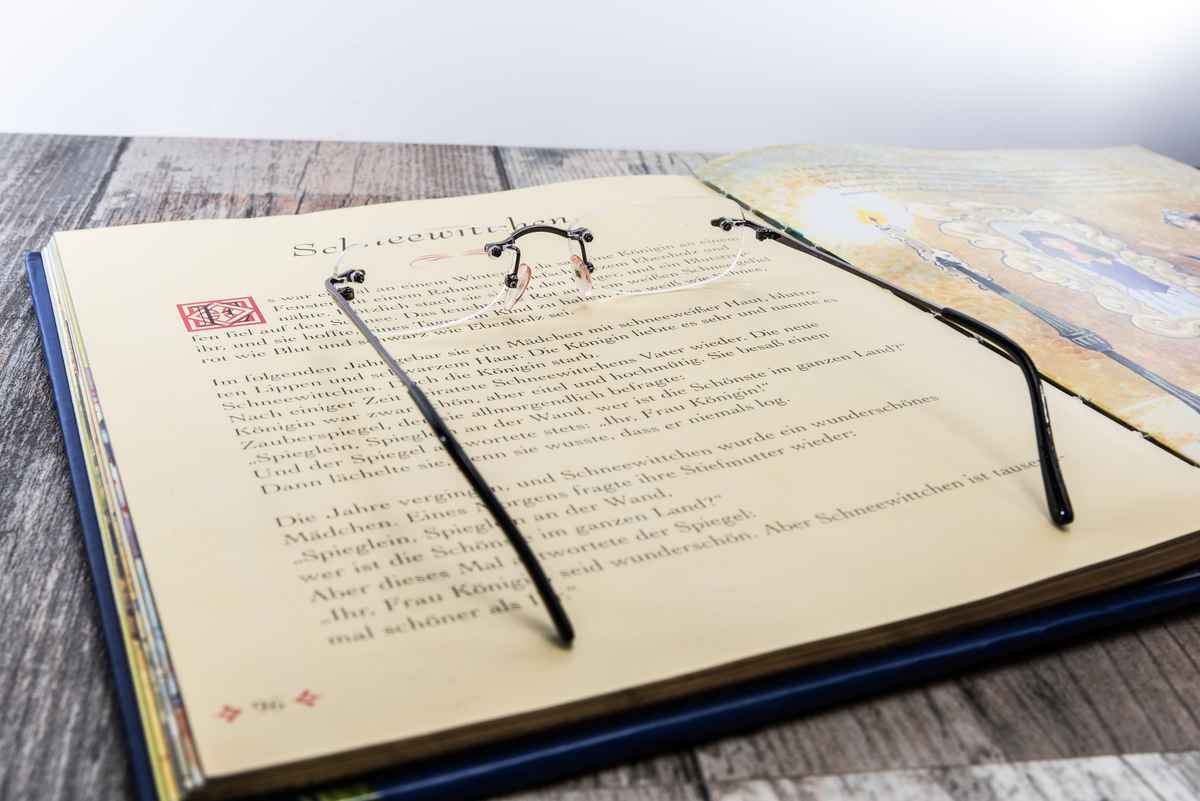 Schneewittchen
Es war an einem Königin an einem
nähte. stach sie Ebenholz und
auf den Das
ihr, und sie Kind
rot wie Blut und schwarz wie Ebenholz sei.
Im folgenden Jahr gebar sie ein Mädchen mit schneeweißer Haut, blutro-
ten Lippen und schwarzem Haar. Die Königin liebte es sehr und nannte es
Schneewittchen. Doch die Königin starb.
Nach einiger Zeit heiratete Schneewittchens Vater wieder. Die neue
Königin war zwar schön, aber eitel und hochmütig. Sie besaß einen
Zauberspiegel, den sie allmorgendlich befragte:
„Spieglein, Spieglein an der Wand, wer ist die Schönste im ganzen Land?“
Und der Spiegel antwortete stets: „Ihr, Frau Königin!“
Dann lächelte sie, denn sie wusste, dass er niemals log.
Die Jahre vergingen, und Schneewittchen wurde ein wunderschönes
Mädchen. Eines Morgens fragte ihre Stiefmutter wieder:
„Spieglein, Spieglein an der Wand,
wer ist die Schönste im ganzen Land?“
Aber dieses Mal antwortete der Spiegel:
„Ihr, Frau Königin, seid wunderschön. Aber Schneewittchen ist tausend-
mal schöner als Ihr.“
96